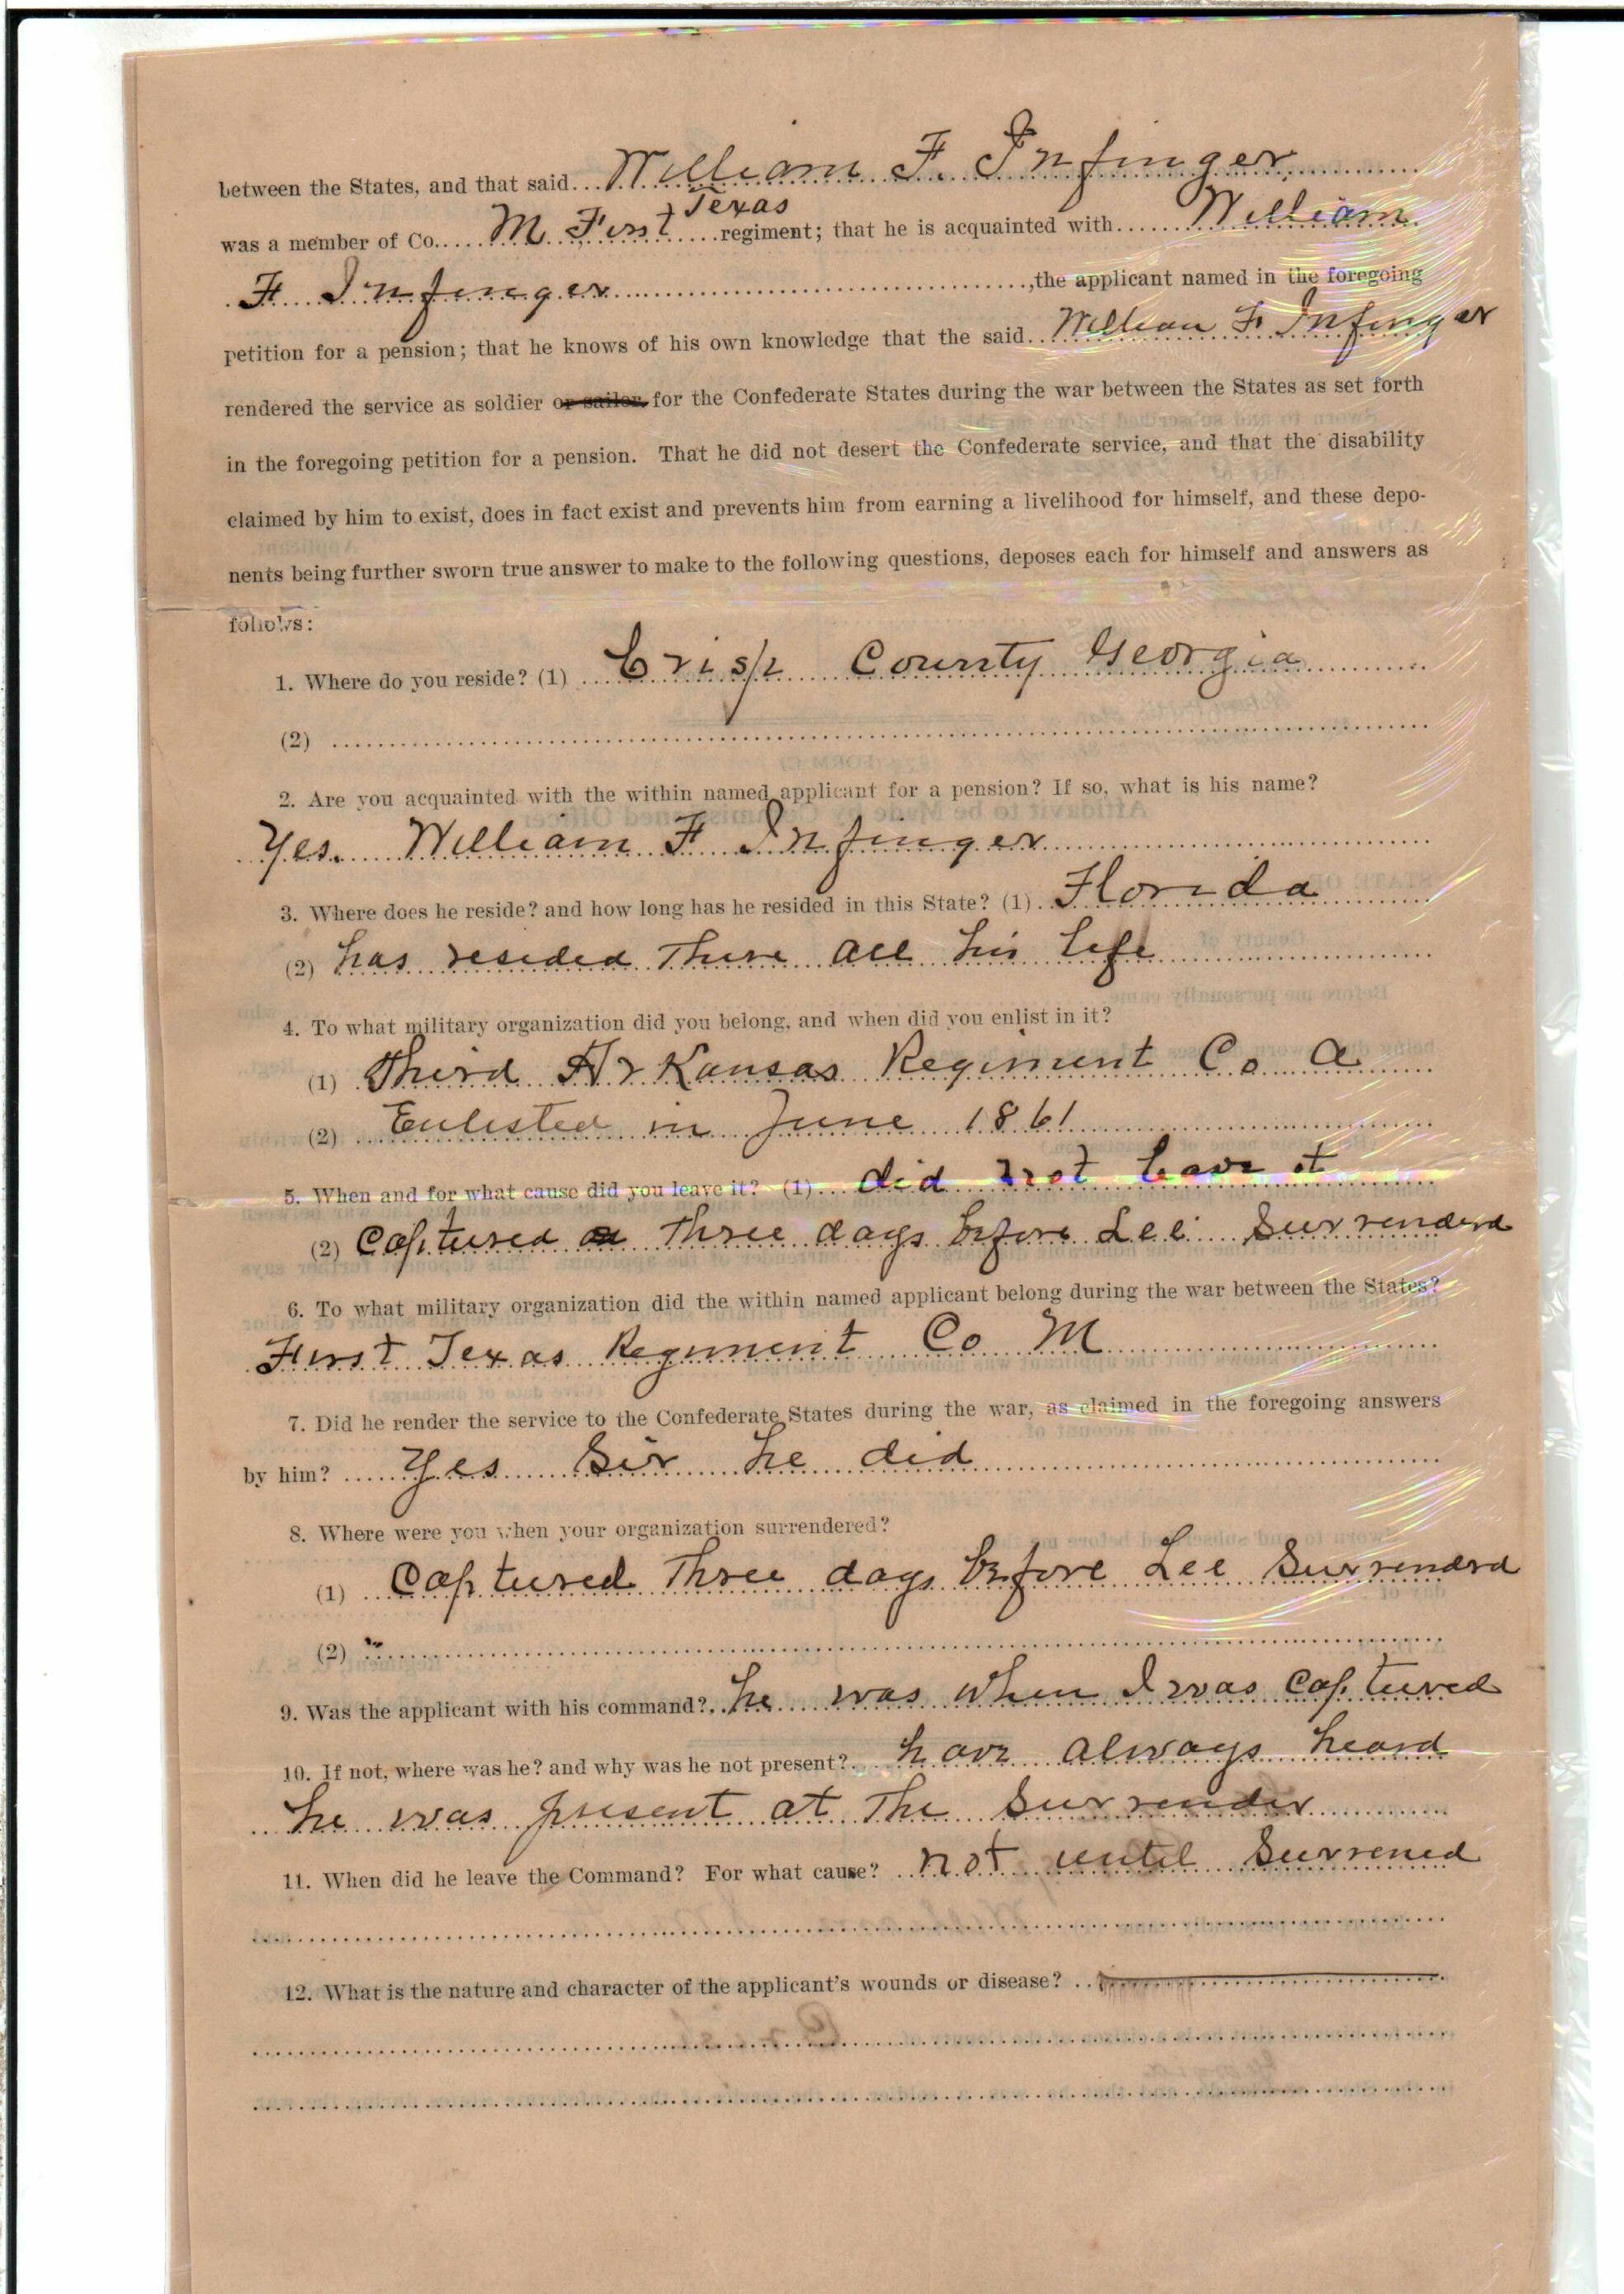 between the States, and that said William F. Infinger
Texas
was a member of Co. M First regiment; that he is acquainted with William
F Infinger, the applicant named in the foregoing
petition for a pension; that he knows of his own knowledge that the said William F Infinger
rendered the service as soldier or sailor for the Confederate States during the war between the States as set forth
in the foregoing petition for a pension. That he did not desert the Confederate service, and that the disability
claimed by him to exist, does in fact exist and prevents him from earning a livelihood for himself, and these depo-
nents being further sworn true answer to make to the following questions, deposes each for himself and answers as
follows:
1. Where do you reside? (1) Crisp County Georgia
(2)
2. Are you acquainted with the within named applicant for a pension? If so, what is his name?
Yes. William F Infinger
3. Where does he reside? and how long has he resided in this State? (1) Florida
(2) has resided There all his life
4. To what military organization did you belong, and when did you enlist in it?
(1) Third ArKansas Regiment Co A
(2) Enlisted in June 1861
5. When and for what cause did you leave it? (1) did not leave it
(2) Captured Three days before Lee Surrenderd
6. To what military organization did the within named applicant belong during the war between the States?
First Texas Regiment Co M
7. Did he render the service to the Confederate States during the war, as claimed in the foregoing answers
by him? Yes Sir he did
8. Where were you when your organization surrendered?
(1) Captured Three days before Lee Surrendrd
(2)
9. Was the applicant with his command? he was when I was Captured
10. If not, where was he? and why was he not present? have always heard
he was present at The Surrender
11. When did he leave the Command? For what cause? not until Surrened
12. What is the nature and character of the applicant's wounds or disease?